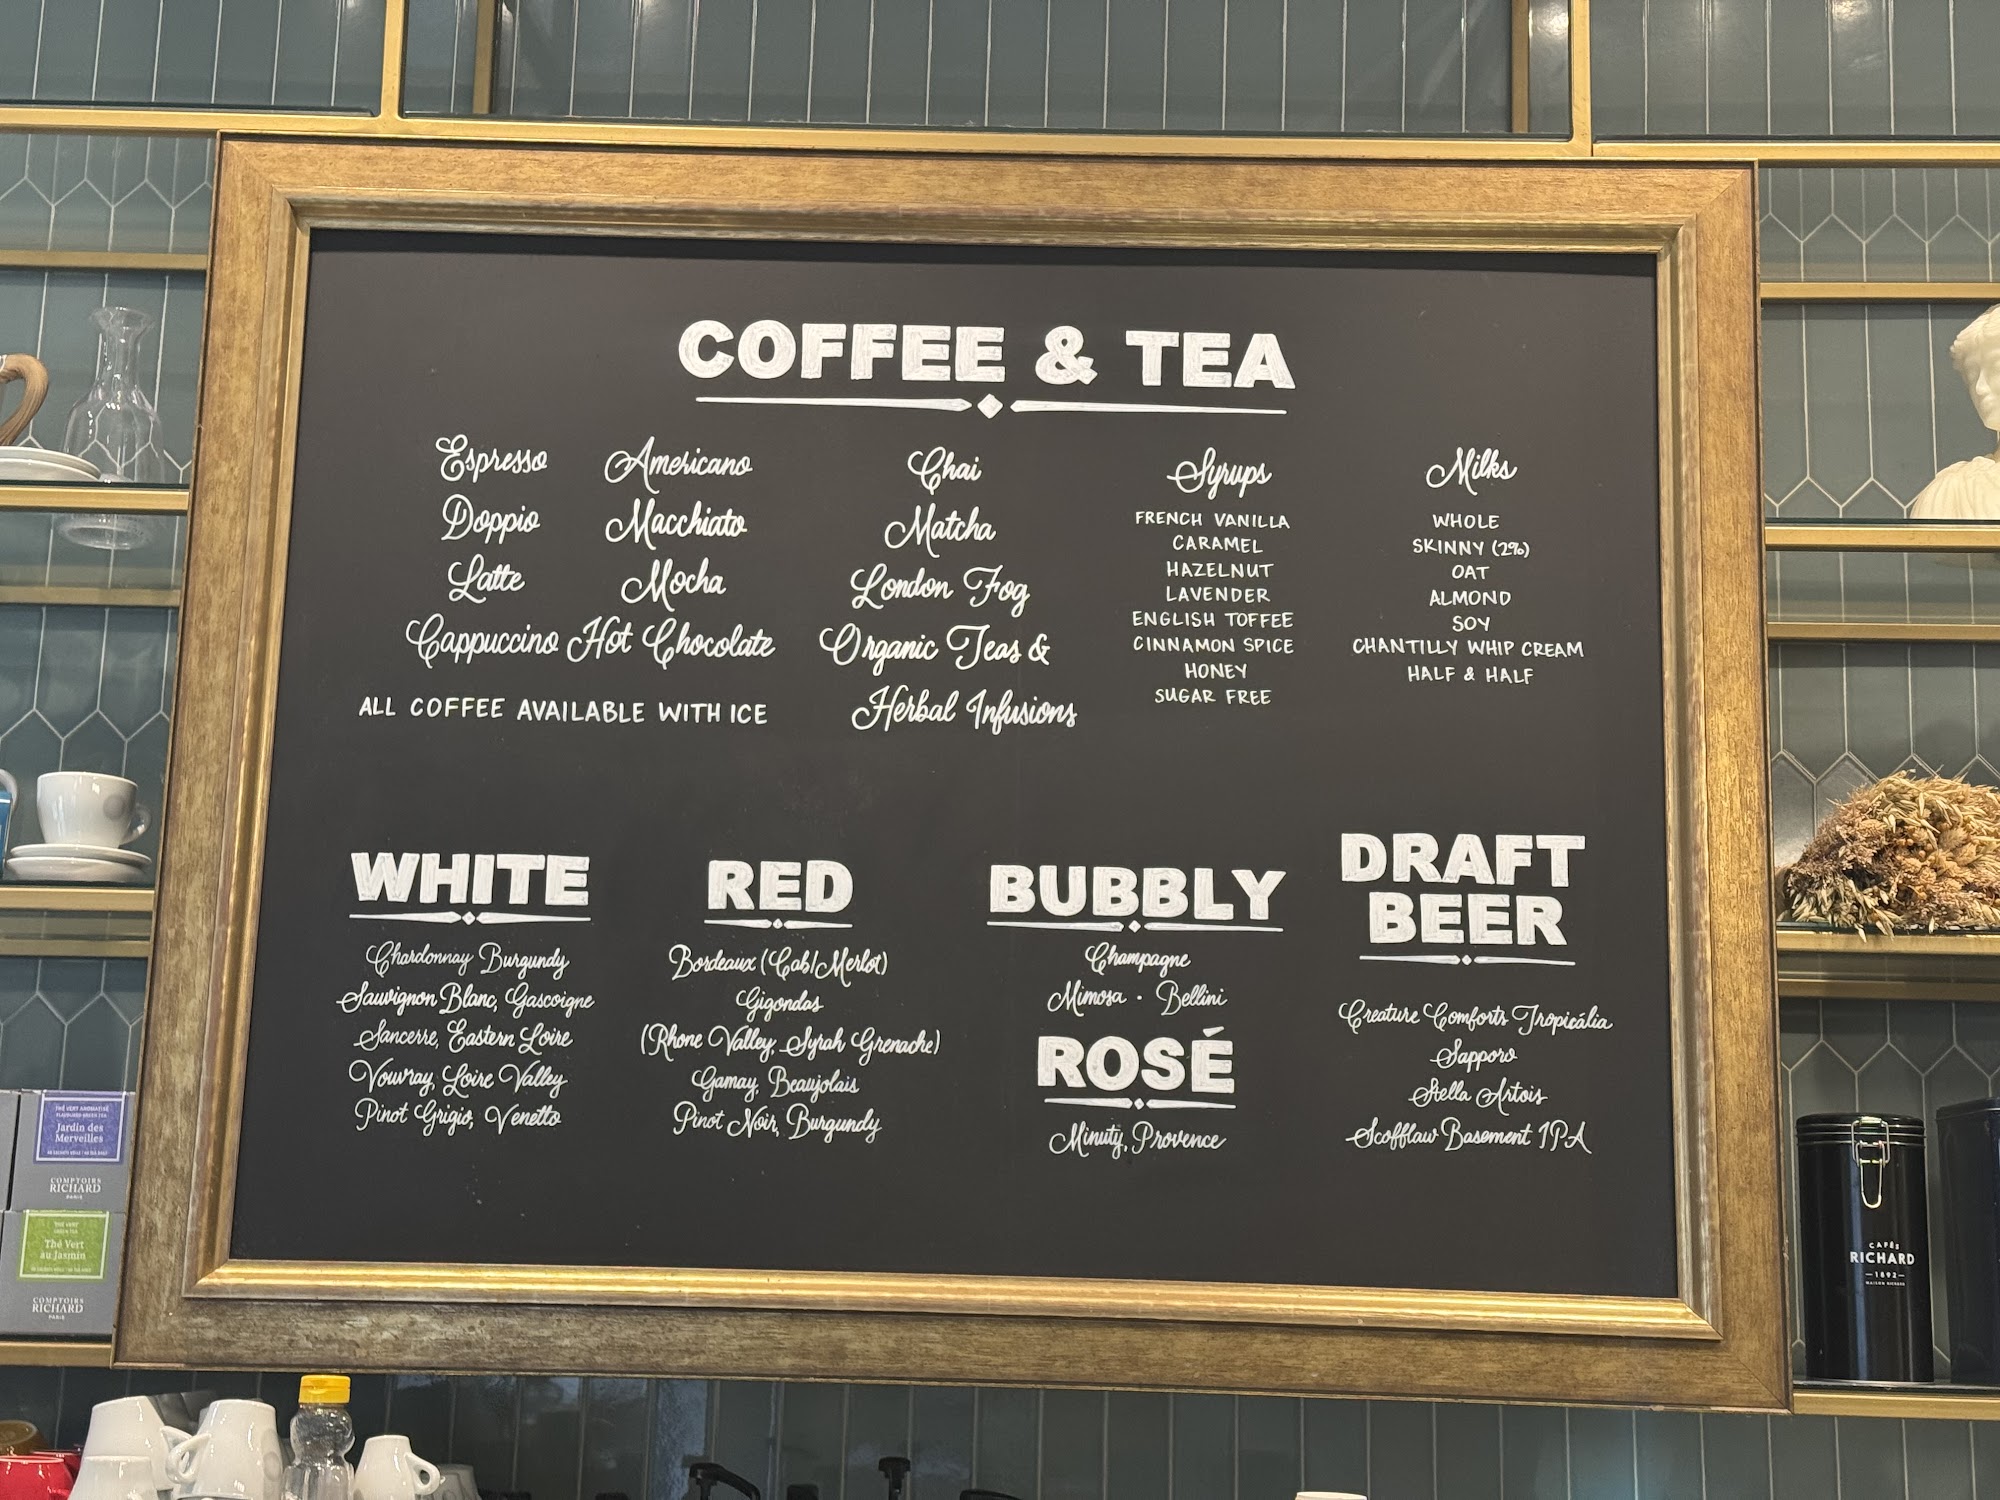 COFFEE & TEA
Espresso
Doppio
Latte
Cappuccino
Americano
Macchiato
Mocha
Hot Chocolate
ALL COFFEE AVAILABLE WITH ICE
Chai
Matcha
London Fog
Organic Teas &
Herbal Infusions
Syrups
FRENCH VANILLA
CARAMEL
HAZELNUT
LAVENDER
ENGLISH TOFFEE
CINNAMON SPICE
HONEY
SUGAR FREE
Milks
WHOLE
SKINNY (2%)
OAT
ALMOND
SOY
CHANTILLY WHIP CREAM
HALF & HALF
WHITE
Chardonnay Burgundy
Sauvignon Blanc, Gascoigne
Sancerre, Eastern Loire
Vouvray, Loire Valley
Pinot Grigio, Venetto
RED
Bordeaux (Cab/Merlot)
Gigondas
(Rhone Valley, Syrah Grenache)
Gamay, Beaujolais
Pinot Noir, Burgundy
BUBBLY
Champagne
Mimosa · Bellini
ROSÉ
Minuty, Provence
DRAFT
BEER
Creature Comforts Tropicália
Sapporo
Stella Artois
Scofflaw Basement IPA
THÉ VERT AROMATISÉ
FLAVOURED GREEN TEA
Jardin des
Merveilles
COMPTOIRS
RICHARD
PARIS
THÉ VERT
GREEN TEA
Thé Vert
au Jasmin
COMPTOIRS
RICHARD
PARIS
CAFÉS
RICHARD
1892
MAISON RICHARD